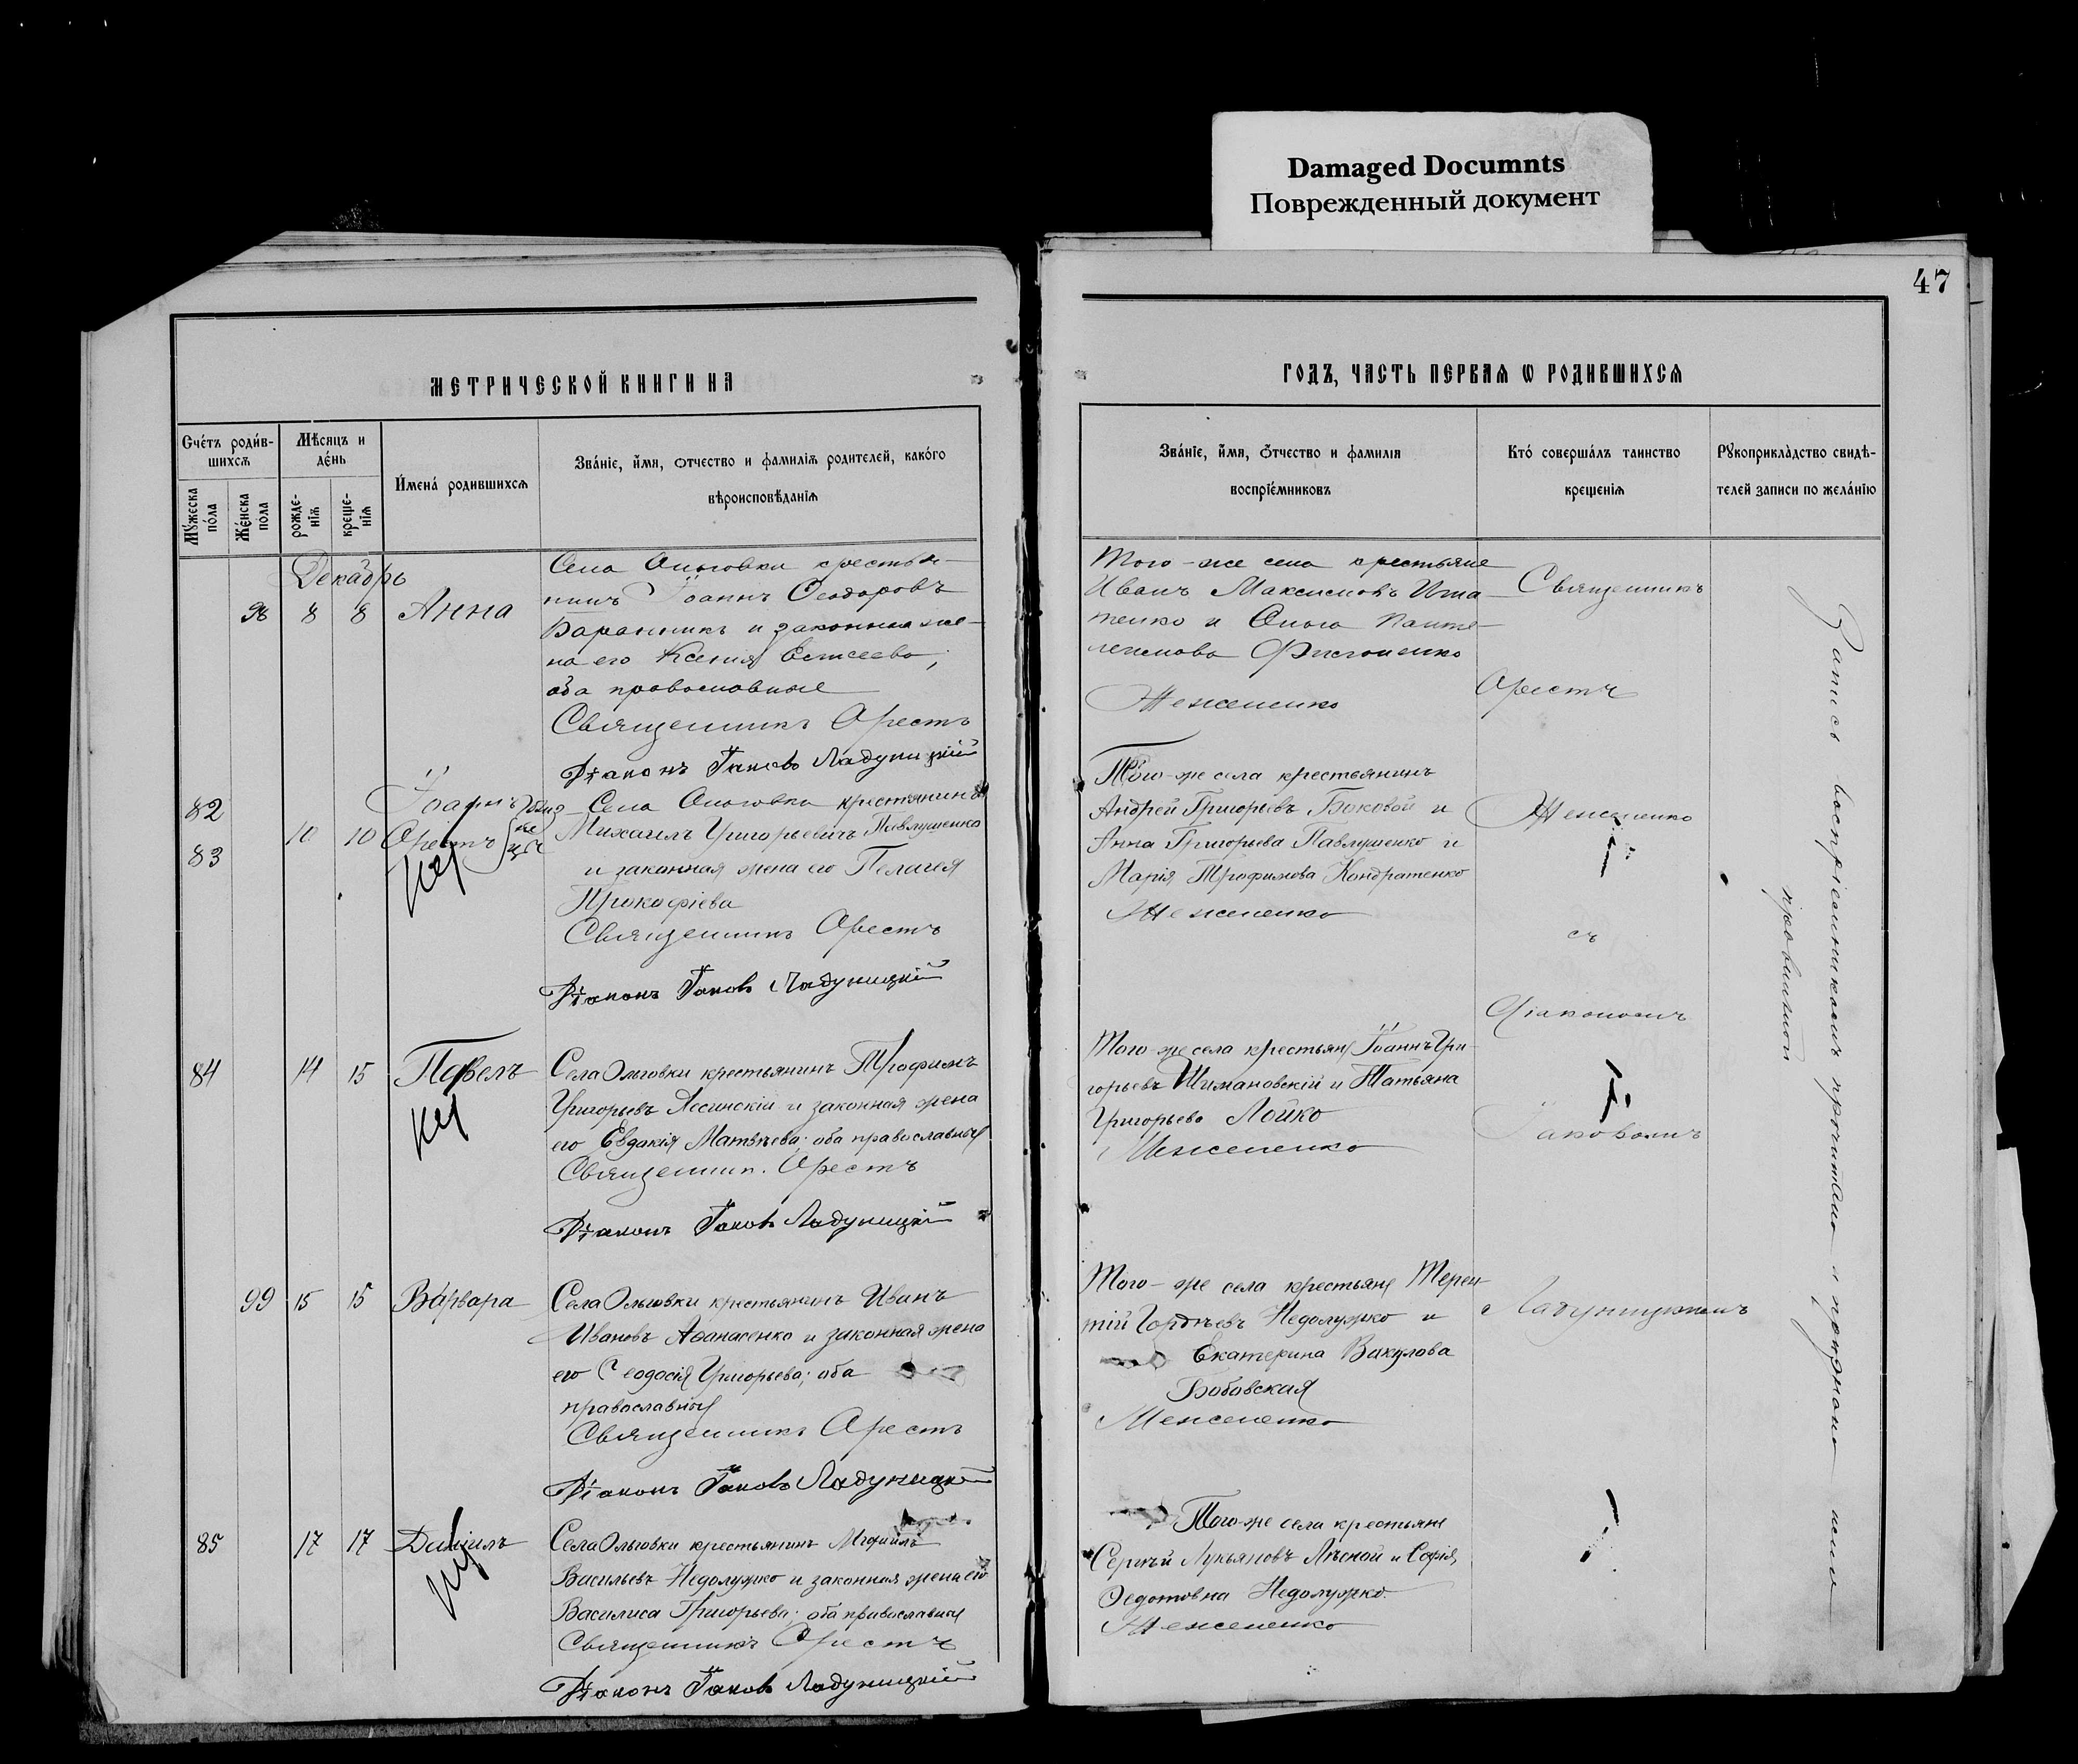 Damaged Documnts
Поврежденный документ
47
МЕТРИЧЕСКОЙ КНИГИ НА
ГОДЪ, ЧАСТЬ ПЕРВАЯ Ѡ РОДИВШИХСЯ
Счётъ родив-
шихся
Мѣсяцъ и
день
Мужеска
пола
Женска
пола
рожде-
нія
креще-
нія
Имена родившихся
Званіе, имя, отчество и фамилія родителей, какого
вѣроисповѣданія
Званіе, имя, отчество и фамилія
воспріемниковъ
Кто совершалъ таинство
крещенія
Рукоприкладство свидѣ-
телей записи по желанію
Декабрь
98 8 8 Анна
Села Ольговки крестья-
нинъ Іоаннъ Ѳеодоровъ
Баранникъ и законная же-
на его Ксенія Евсеева;
оба православные
Священникъ Орестъ
Діаконъ Іаковъ Ладуницкій
Того-же села крестьяне
Иванъ Максимовъ Игна-
тенко и Ольга Панте-
леимова
Женженко
82
83
10 10
Іоаннъ
Орестъ
Села Ольговки крестьянинъ
Михаилъ Григорьевичъ Павлушенко
и законная жена его Пелагея
Прокофіева
Священникъ Орестъ
Діаконъ Іаковъ Ладуницкій
Того-же села крестьянинъ
Андрей Григорьевъ Боковой и
Анна Григорьева Павлушенко и
Марія Трофимова Кондратенко
84 14 15 Павелъ
Села Ольговки крестьянинъ Трофимъ
Григорьевъ Лесинскій и законная жена
его Евдокія Матвѣева; оба православные
Священник. Орестъ
Діаконъ Іаковъ Ладуницкій
Того-же села крестьяне Іоаннъ Гри-
горьевъ Шимановскій и Татьяна
Григорьева Лойко
99 15 15 Варвара
Села Ольговки крестьянинъ Иванъ
Ивановъ Аѳанасенко и законная жена
его Ѳеодосія Григорьева; оба
православные
Священникъ Орестъ
Діаконъ Іаковъ Ладуницкій
Того-же села крестьяне Терен-
тій Гордѣевъ Недолужко и
Екатерина Вакулова
Бобовская
85 17 17 Даніилъ
Села Ольговки крестьянинъ Михаилъ
Васильевъ Недолужко и законная жена его
Василиса Григорьева; оба православные
Священникъ Орестъ
Діаконъ Іаковъ Ладуницкій
Того-же села крестьяне
Сергѣй Лукьяновъ Лѣсной и Софія
Ѳедотовна Недолужко
Священникъ
Орестъ
съ
Діакономъ
Іаковомъ
Ладуницкимъ
Запись воспріемникамъ прочитана и признана ими
правильной